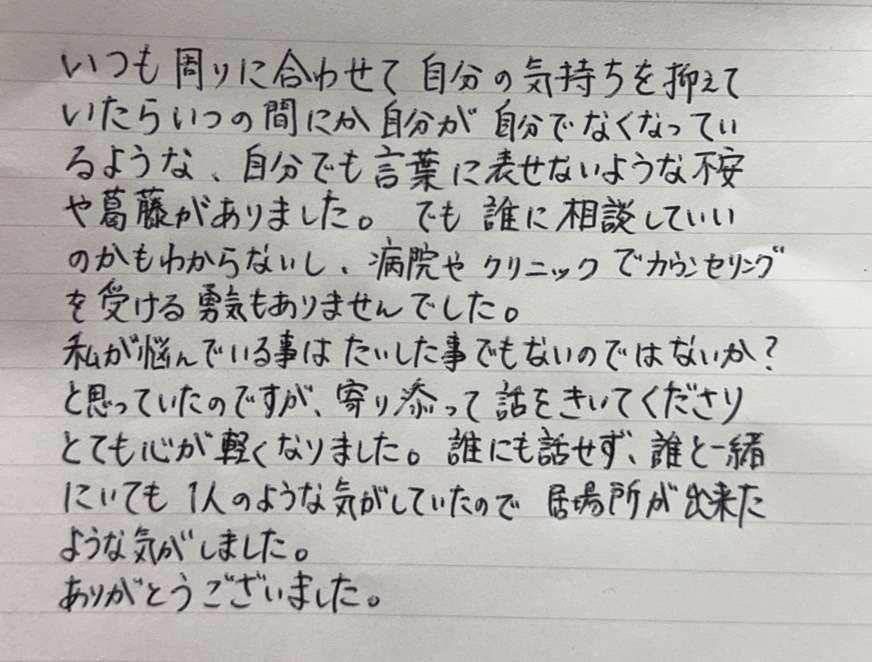 いつも周りに合わせて自分の気持ちを抑えて
いたらいつの間にか自分が自分でなくなってい
るような、自分でも言葉に表せないような不安
や葛藤がありました。でも誰に相談していい
のかもわからないし、病院やクリニックでカウンセリング
を受ける勇気もありませんでした。
私が悩んでいる事はたいした事でもないのではないか?
と思っていたのですが、寄り添って話をきいてくださり
とても心が軽くなりました。誰にも話せず、誰と一緒
にいても1人のような気がしていたので居場所が出来た
ような気がしました。
ありがとうございました。